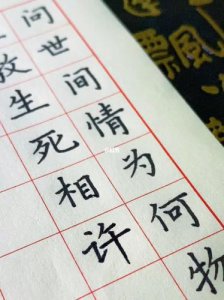 问世间情为何物
教生死相许
飄